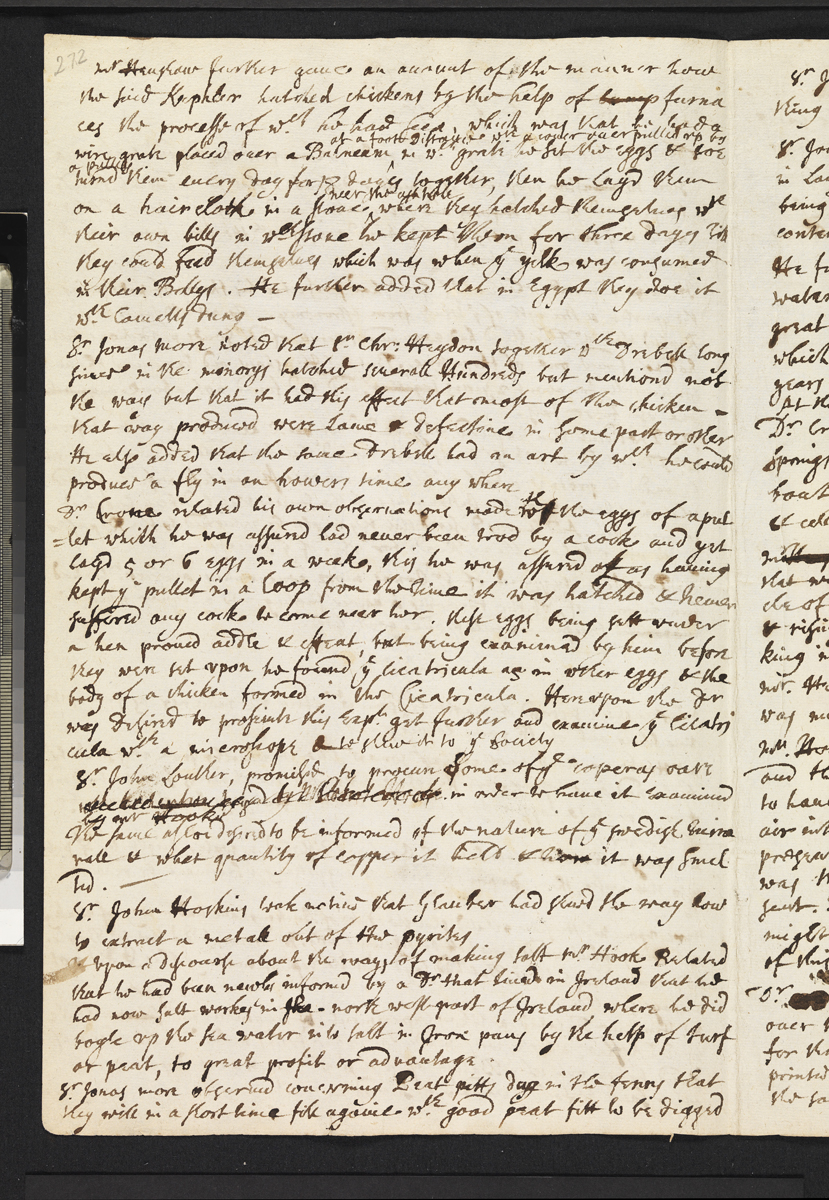 272
mr Henshaw further gaue an account of the manner how
the said Kephler hatched chickens by the help of furna
ces the processe of wch he had seen, which was that he had a
at a foots distance wth a couer ouer pulled up by
wire grate placed ouer a Balneum, in wch grate he set the eggs & soe
a pulley
turned them euery day for dayes together, then he layd them
neer the ash hole
on a haircloth in a stoue, where they hatched themselues wth
their own bills in wch stoue he kept them for three dayes till
they could feed themselues which was when ye yelk was consumed
in their Bellys. He further added that in Egypt they doe it
wth Camells dung —
Sr Jonas more noted that Sr Chr: Heydon together wth Drebell long
since in the minorys hatched seuerall Hundreds but mentiond not
the way but that it had this effect that most of the chicken
that way produced were lame & defectiue in some part or other
He also added that the same Drebell had an art by wch he could
produce a fly in an howers time any where
Dr Croone related his own obseruations made the eggs of a pul
=let which he was assured had neuer been trod by a cock and yet
layd 5 or 6 eggs in a weeke, this he was assured of as hauing
kept ye pullet in a coop from the time it was hatched & neuer
suffered any cock to come near her. these eggs being sett vnder
a hen proued addle & effeat, but being examined by him before
they were set vpon he found ye cicatricula as in other eggs & the
body of a chicken formed in the Cicatricula Herevpon the Dr
was desired to prosecute this Expt yet further and examine ye Cicatri
cula wth a microscope & to shew it to ye Society
Sr John Louther, promised to procure some of ye coperas oare
in order to haue it examined
by mr Hooke
The same allso desired to be informed of the nature of ye swedish
& what quantity of copper it held & how it was smel
ted. —
Sr John Hoskins took notice that Glauber had shewd the way how
to extract a metall out of the pyrites
vpon a discourse about the ways of making salt mr Hook Related
that he had been newly informed by a Dr that liued in Ireland that he
had now salt workes in the north west part of Ireland where he did
bogle vp the sea water into salt in Iron pans by the help of turf
or peat, to great profit or aduantage.
Sr Jonas more obserued concerning Peat pitts dug in the fenns that
they will in a short time fill againe wth good peat fitt to be digged